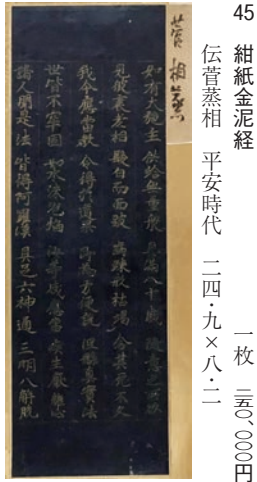 45 紺紙金泥経 一枚 二五〇、〇〇〇円
伝菅蒸相 平安時代 二四・九×八・二
菅相蒸
如有大施主 供給無量衆 具滿八十歳 隨意之所欲
見彼衰老相 髮白而面皺 齒踈形枯竭 念其死不久
我今應當教 令得於道果 即為方便説 涅槃真實法
世皆不牢固 如水沫泡焔 汝等咸應當 疾生厭離心
諸人聞是法 皆得阿羅漢 具足六神通 三明八解脱